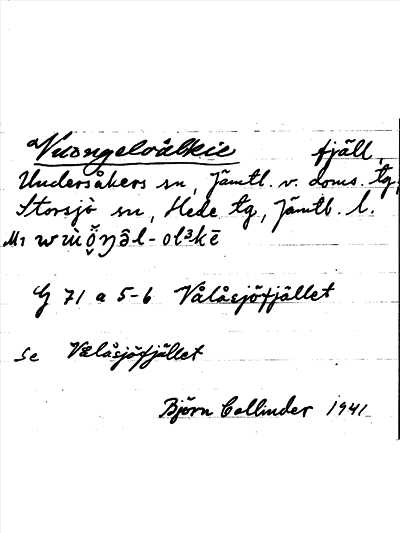 Vuongelvålkie fjäll,
Undersåkers sn, Jämtl. v. doms. tg,
Storsjö sn, Hede tg, Jämtl. l.
G 71 a 5-6 Vålåsjöfjället
se Vålåsjöfjället
Björn Collinder 1941